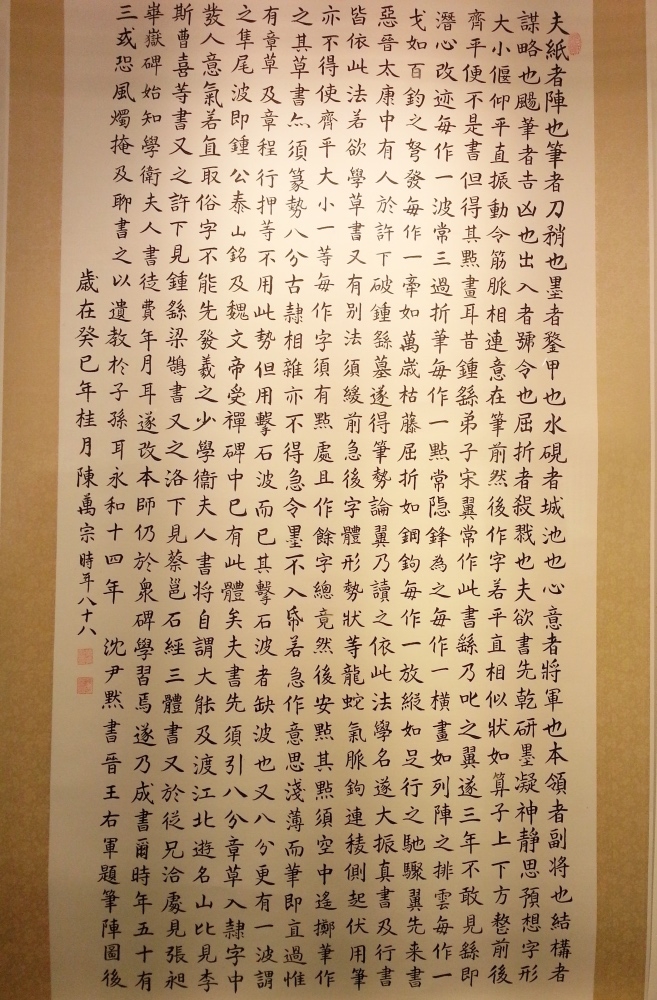 夫紙者陣也筆者刀矟也墨者鍪甲也水硯者城池也心意者將軍也本領者副將也結構者
謀略也颺筆者吉凶也出入者號令也屈折者殺戮也夫欲書先乾研墨凝神靜思預想字形
大小偃仰平直振動令筋脈相連意在筆前然後作字若平直相似狀如算子上下方整前後
齊平便不是書但得其點畫耳昔鍾繇弟子宋翼常作此書繇乃叱之翼遂三年不敢見繇即
潛心改迹每作一波常三過折筆每作一點常隱鋒為之每作一橫畫如列陣之排雲每作一
戈如百鈞之弩發每作一牽如萬歲枯藤屈折如鋼鉤每作一放縱如足行之馳驟翼先来書
惡晉太康中有人於許下破鍾繇墓遂得筆勢論翼乃讀之依此法學名遂大振真書及行書
皆依此法若欲學草書又有別法須緩前急後字體形勢狀等龍蛇氣脈鉤連稜側起伏用筆
亦不得使齊平大小一等每作字須有點處且作餘字總竟然後安點其點須空中遙擲筆作
之其草書亦須篆勢八分古隸相雜亦不得急令墨不入帋若急作意思淺薄而筆即直過惟
有章草及章程行押等不用此勢但用擊石波而已其擊石波者缺波也又八分更有一波謂
之隼尾波即鍾公泰山銘及魏文帝受禪碑中已有此體矣夫書先須引八分章草入隸字中
發人意氣若直取俗字不能先發羲之少學衞夫人書將自謂大能及渡江北遊名山比見李
斯曹喜等書又之許下見鍾繇梁鵠書又之洛下見蔡邕石經三體書又於從兄洽處見張昶
華嶽碑始知學衛夫人書徒費年月耳遂改本師仍於衆碑學習焉遂乃成書爾時年五十有
三或恐風燭掩及聊書之以遺教於子孫耳永和十四年 沈尹默書晉王右軍題筆陣圖後
歲在癸巳年桂月陳萬宗時年八十八